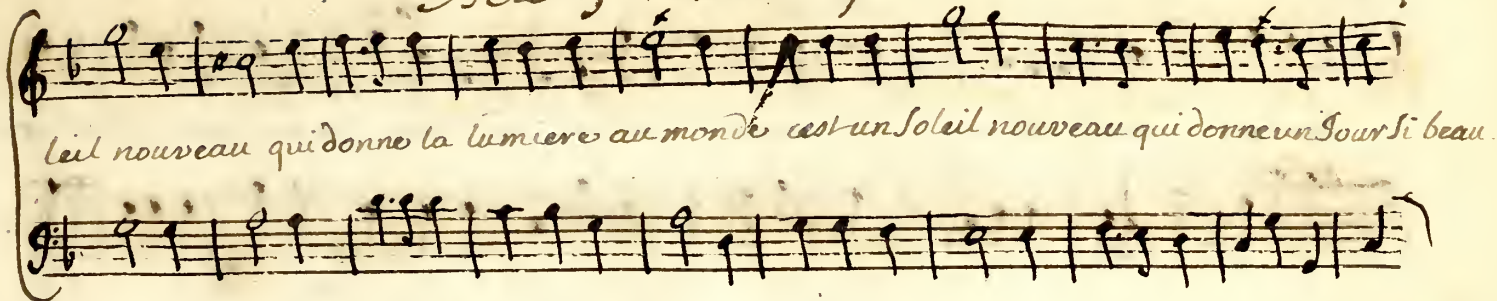 leil nouveau qui donne la lumiere au monde cest un soleil nouveau qui donne un Jour si beau